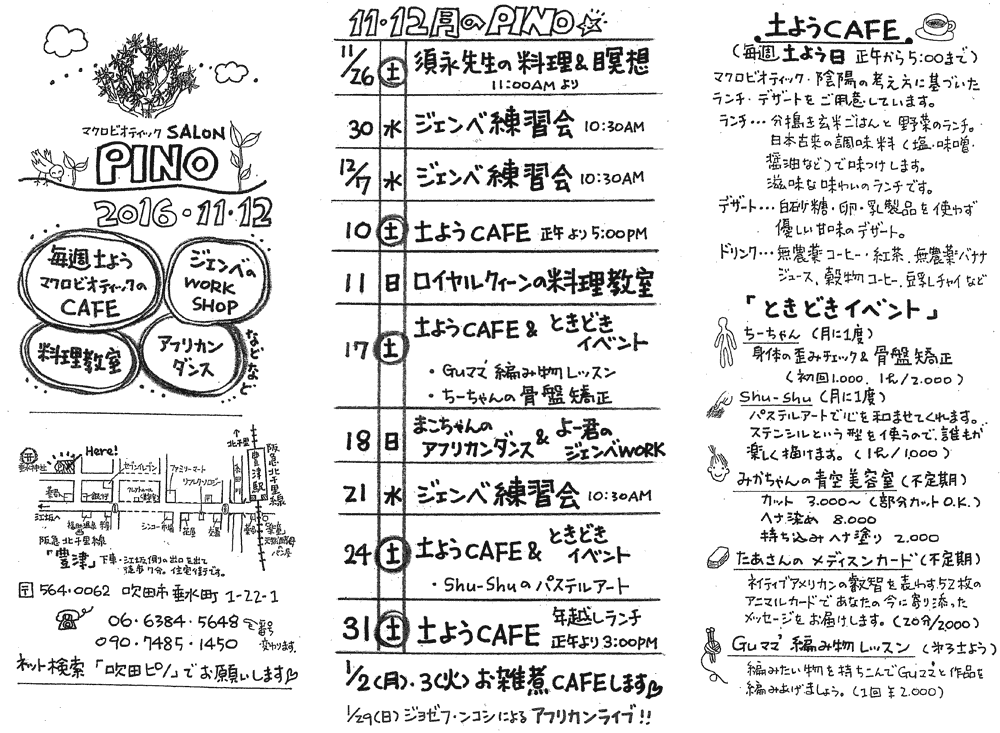 マクロビオティック SALON
PINO
2016・11・12
毎週土よう
マクロビオティックの
CAFE
ジェンベの
WORK
SHOP
料理教室
アフリカン
ダンス
などなど…
Here!
セブンイレブン
ファミリーマート
北千里
豊津駅
阪急北千里線
江坂へ
阪急北千里線
「豊津」下車・江坂側の出口を出て
徒歩7分。住宅街です。
〒564・0062 吹田市垂水町 1-22-1
06・6384・5648
090・7485・1450
変わります。
ネット検索「吹田ピノ」でお願いします
11・12月のPINO☆
11/26 土 須永先生の料理&瞑想
11:00AMより
30 水 ジェンベ練習会 10:30AM
12/7 水 ジェンベ練習会 10:30AM
10 土 土ようCAFE 正午より5:00PM
11 日 ロイヤルクィーンの料理教室
17 土 土ようCAFE & ときどき
イベント
・Guママ編み物レッスン
・ちーちゃんの骨盤矯正
18 日 まこちゃんの
アフリカンダンス & よー君の
ジェンベWORK
21 水 ジェンベ練習会 10:30AM
24 土 土ようCAFE & ときどき
イベント
・Shu-Shuのパステルアート
31 土 土ようCAFE 年越しランチ
正午より3:00PM
1/2(月)・3(火)お雑煮CAFEします
1/29(日)ジョゼフ・ンコシによるアフリカンライブ!!
土ようCAFE
(毎週土よう日 正午から5:00まで)
マクロビオティック・陰陽の考え方に基づいた
ランチ・デザートをご用意しています。
ランチ…分搗き玄米ごはんと野菜のランチ。
日本古来の調味料(塩・味噌・
醤油など)で味つけします。
滋味な味わいのランチです。
デザート…白砂糖・卵・乳製品を使わず
優しい甘味のデザート。
ドリンク…無農薬コーヒー・紅茶、無農薬バナナ
ジュース、穀物コーヒー、豆乳チャイなど
「ときどきイベント」
ちーちゃん(月に1度)
身体の歪みチェック&骨盤矯正
(初回1.000、1h/2.000)
Shu-Shu(月に1度)
パステルアートで心を和ませてくれます。
ステンシルという型を使うので、誰もが
楽しく描けます。(1h/1,000)
みかちゃんの青空美容室(不定期)
カット 3.000〜(部分カットO.K.)
ヘナ染め 8.000
持ち込みヘナ塗り 2.000
たあさんのメディスンカード(不定期)
ネイティブアメリカンの叡智を表わす52枚の
アニマルカードであなたの今に寄り添った
メッセージをお届けします。(20分/2,000)
Guママ編み物レッスン(第3土よう)
編みたい物を持ちこんでGuママと作品を
編みあげましょう。(1回¥2.000)